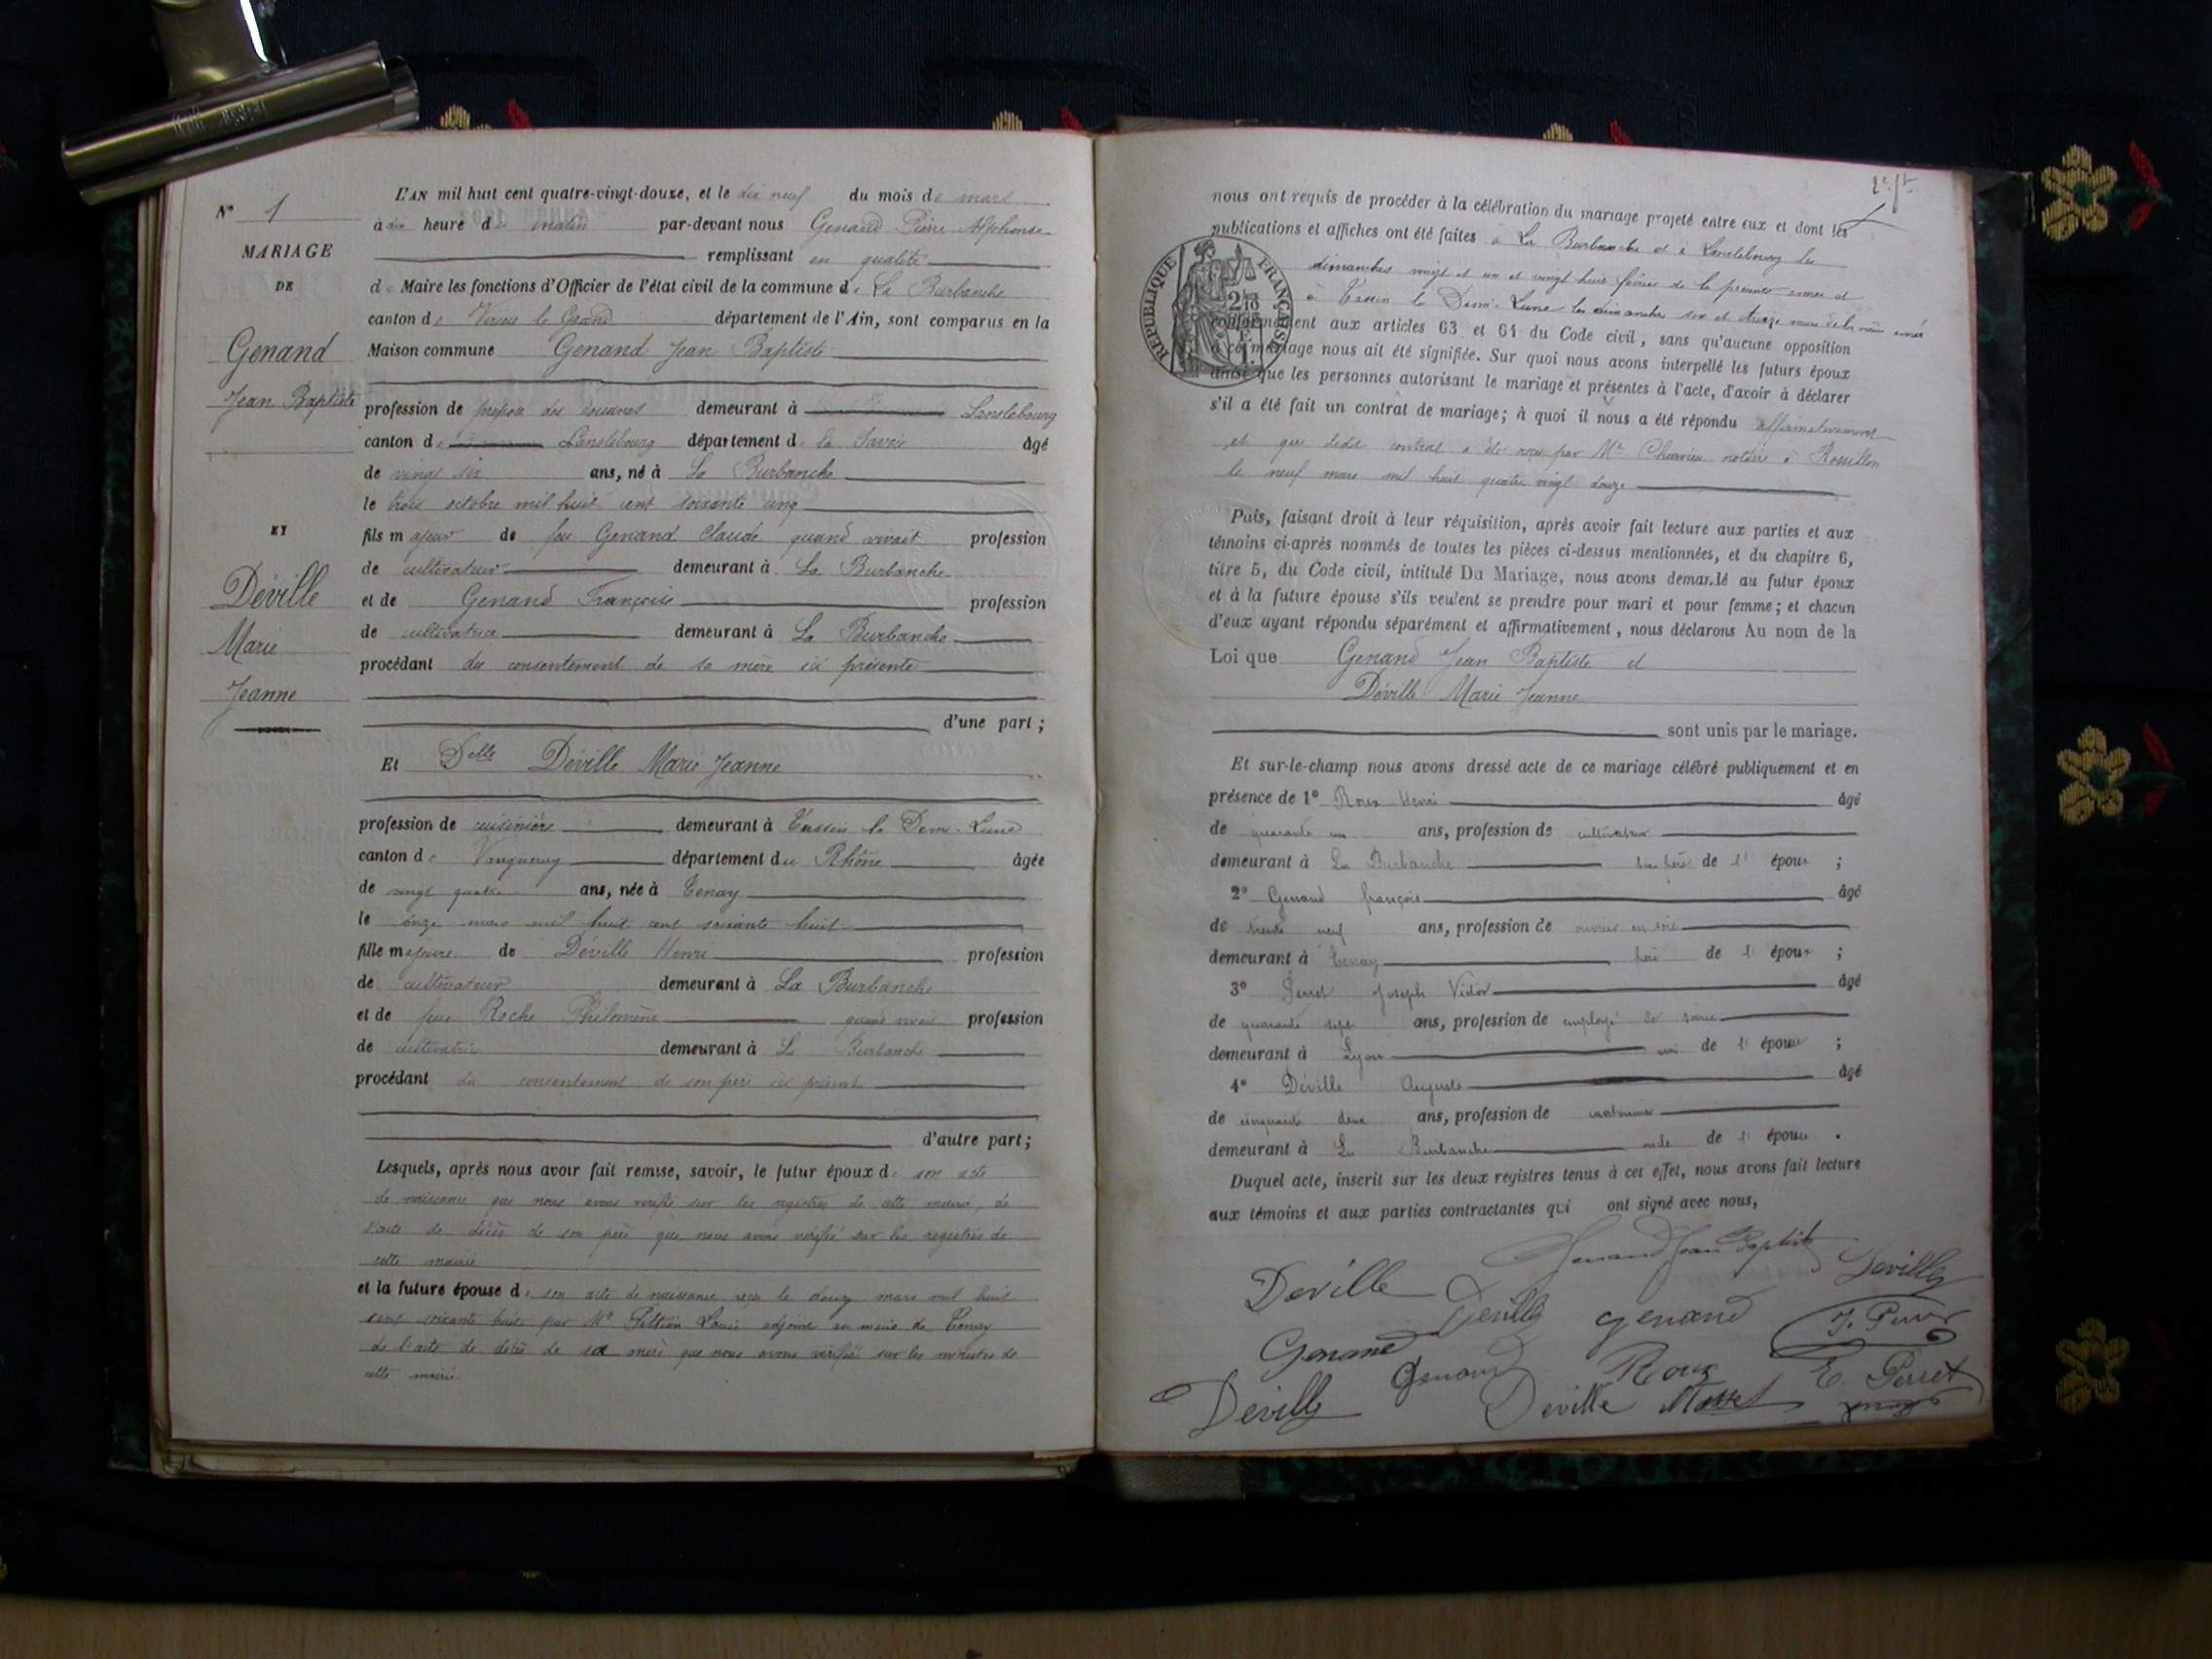 N° 1
MARIAGE
DE
Genand
Jean Baptiste
ET
Déville
Marie
Jeanne
L'AN mil huit cent quatre-vingt-douze, et le dix neuf du mois de mars
à dix heure du matin par-devant nous Genand Pierre Alphonse
remplissant en qualité
de Maire les fonctions d'Officier de l'état civil de la commune de La Burbanche
canton de Virieu le Grand département de l'Ain, sont comparus en la
Maison commune Genand Jean Baptiste
profession de préposé des douanes demeurant à Lanslebourg
canton de Lanslebourg département de la Savoie âgé
de vingt six ans, né à La Burbanche
le trois octobre mil huit cent soixante cinq
fils majeur de feu Genand Claude quand vivait profession
de cultivateur demeurant à La Burbanche
et de Genand Françoise profession
de cultivatrice demeurant à La Burbanche
procédant du consentement de sa mère ici présente
d'une part ;
Et Delle Déville Marie Jeanne
profession de cuisinière demeurant à Tassin la Demi-Lune
canton de Vaugneray département du Rhône âgée
de vingt quatre ans, née à Tenay
le onze mars mil huit cent soixante huit
fille majeure de Déville Henri profession
de cultivateur demeurant à La Burbanche
et de feue Roche Philomène quand vivait profession
de cultivatrice demeurant à La Burbanche
procédant du consentement de son père ici présent
d'autre part ;
Lesquels, après nous avoir fait remise, savoir, le futur époux de son acte
de naissance que nous avons vérifié sur les registres de cette mairie, de
l'acte de décès de son père que nous avons vérifié sur les registres de
cette mairie
et la future épouse de son acte de naissance reçu le douze mars mil huit
cent soixante huit par Mr Louis adjoint au maire de Tenay
de l'acte de décès de sa mère que nous avons vérifié sur les minutes de
cette mairie
nous ont requis de procéder à la célébration du mariage projeté entre eux et dont les
publications et affiches ont été faites à La Burbanche et à Lanslebourg les
dimanches vingt et un et vingt huit février de la présente année et
à Tassin la Demi-Lune les dimanches six et treize mars de la même année
RÉPUBLIQUE FRANÇAISE
conformément aux articles 63 et 64 du Code civil, sans qu'aucune opposition
à ce mariage nous ait été signifiée. Sur quoi nous avons interpellé les futurs époux
ainsi que les personnes autorisant le mariage et présentes à l'acte, d'avoir à déclarer
s'il a été fait un contrat de mariage; à quoi il nous a été répondu affirmativement
et que ledit contrat a été reçu par Me notaire à Rossillon
le neuf mars mil huit quatre vingt douze
Puis, faisant droit à leur réquisition, après avoir fait lecture aux parties et aux
témoins ci-après nommés de toutes les pièces ci-dessus mentionnées, et du chapitre 6,
titre 5, du Code civil, intitulé Du Mariage, nous avons demandé au futur époux
et à la future épouse s'ils veulent se prendre pour mari et pour femme; et chacun
d'eux ayant répondu séparément et affirmativement, nous déclarons Au nom de la
Loi que Genand Jean Baptiste et
Déville Marie Jeanne
sont unis par le mariage.
Et sur-le-champ nous avons dressé acte de ce mariage célébré publiquement et en
présence de 1° Roux Henri âgé
de quarante un ans, profession de cultivateur
demeurant à La Burbanche de l' époux ;
2° Genand françois âgé
de trente neuf ans, profession de ouvrier en soie
demeurant à Tenay de l' époux ;
3° Perret Joseph Victor âgé
de quarante sept ans, profession de employé
demeurant à Lyon ami de l' épouse ;
4° Déville Auguste âgé
de cinquante deux ans, profession de cantonnier
demeurant à La Burbanche oncle de l' épouse .
Duquel acte, inscrit sur les deux registres tenus à cet effet, nous avons fait lecture
aux témoins et aux parties contractantes qui ont signé avec nous,
Genand Jean Baptiste
Deville Deville
Deville genand J. Perret
Genand Genand Roux E. Perret
Deville Deville